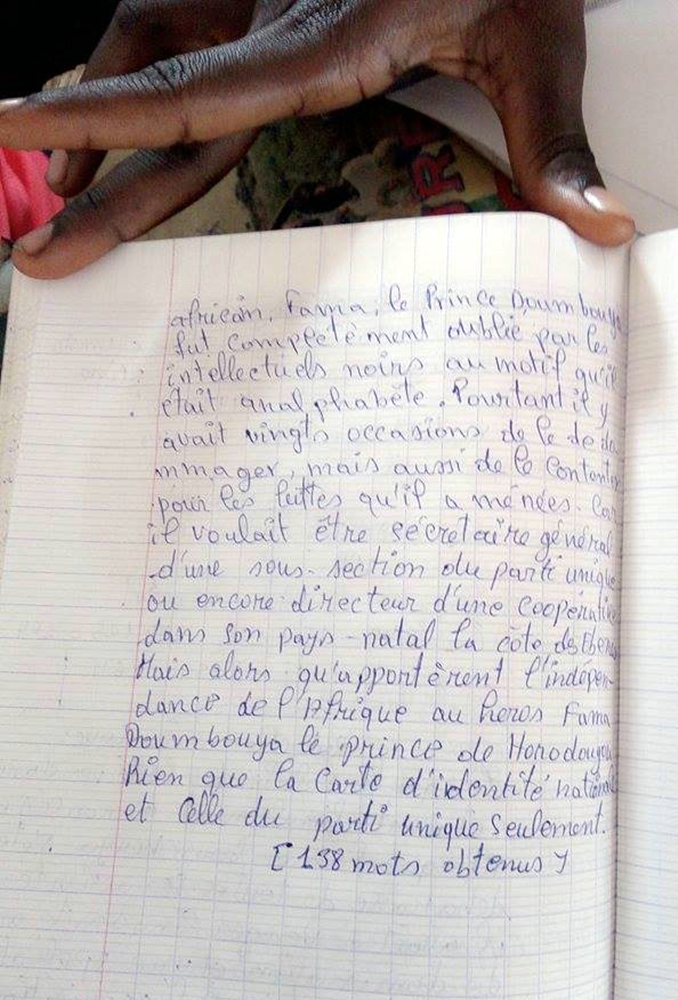 africain. Fama, le Prince Doumbouya
fut complètement oublié par les
intellectuels noirs au motif qu'il
était analphabète. Pourtant il y
avait vingts occasions de le dé da
mmager, mais aussi de le contenter
pour les luttes qu'il a ménées. Car
il voulait être sécretaire général
d'une sous-section du parti unique
ou encore directeur d'une coopérative
dans son pays-natal la côte des Eben
Mais alors qu'apportèrent l'indépen-
dance de l'Afrique au heros Fama
Doumbouya le prince de Horodougou
Rien que la Carte d'identité nationale
et Celle du parti unique seulement.
[138 mots obtenus]